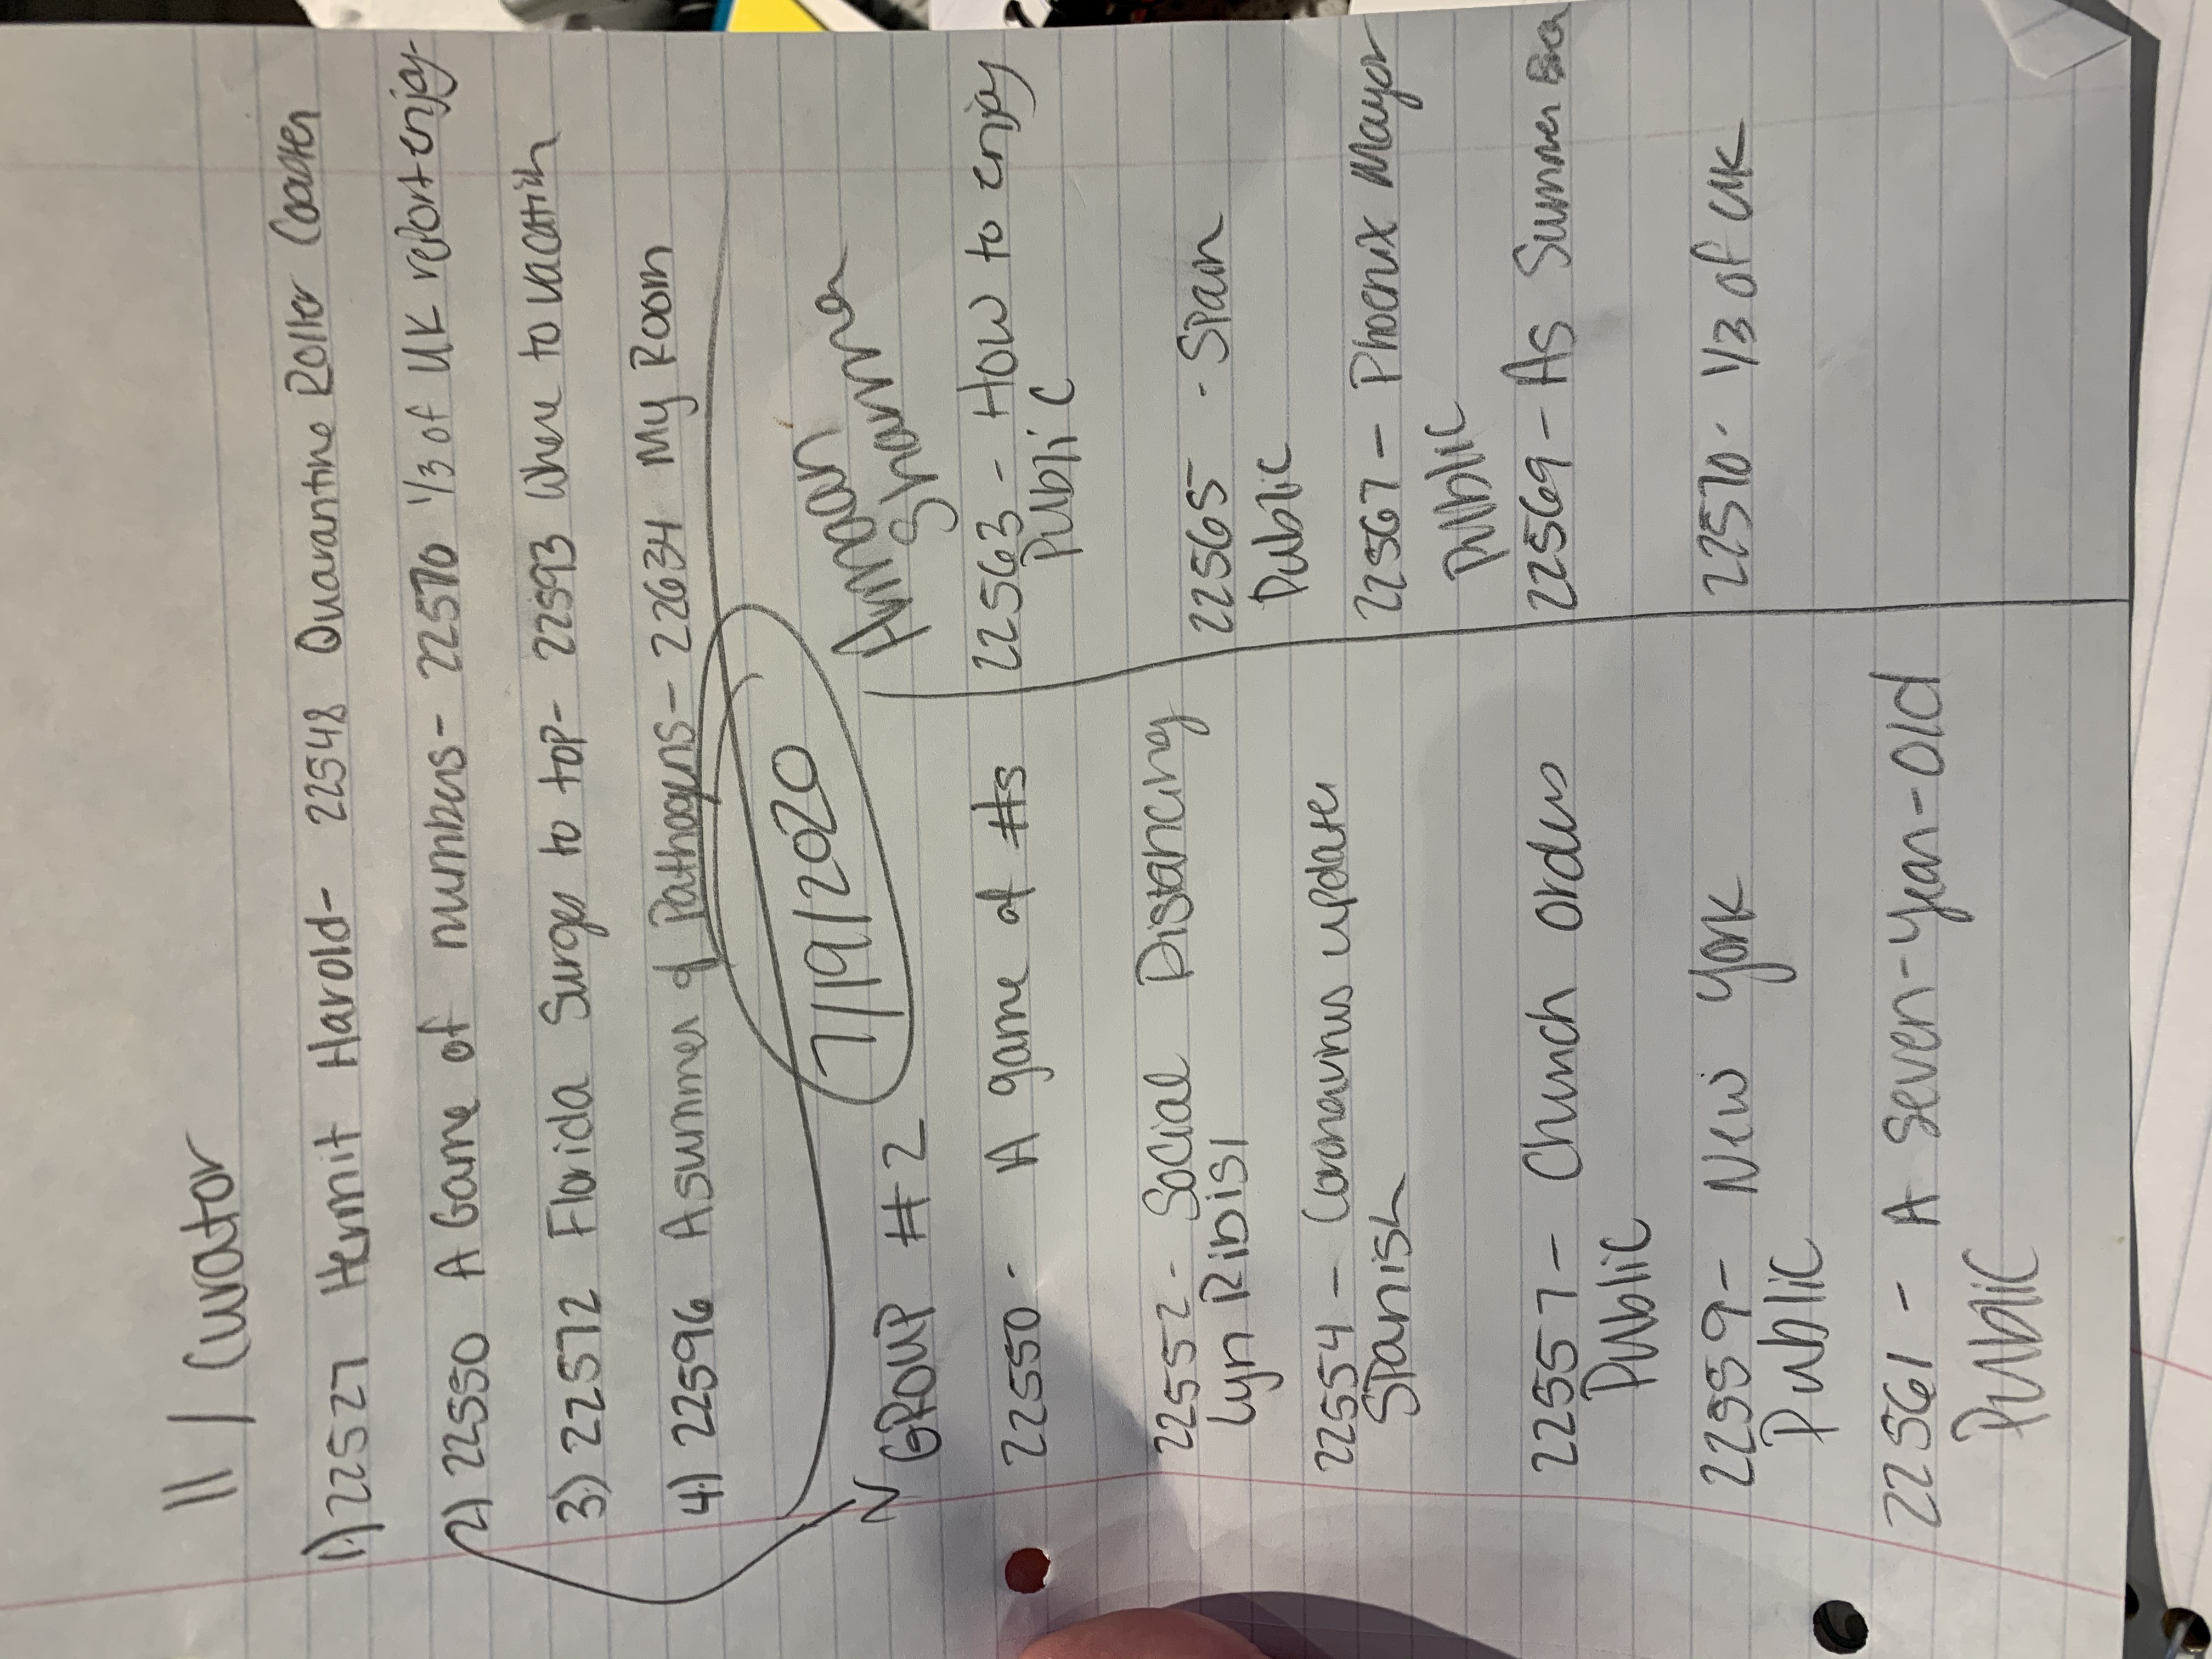 11 / Curator
1) 22527 Hermit Harold- 22548 Quarantine Roller Coaster
2) 22550 A Game of numbers- 22570 1/3 of UK report enjoy
3) 22572 Florida Surges to top- 22593 Where to vacation
4) 22596 A summer of Pathogens- 22634 My Room
7/19/2020
GROUP #2
22550 - A game of #s
22552 - Social Distancing
Lyn Ribisl
22554 - Coronavirus update
Spanish
22557 - Church orders
Public
22559 - New York
Public
22561 - A seven-year-old
Public
Sharma
22563 - How to enjoy
Public
22565 - Spain
Public
22567 - Phoenix Mayor
Public
22569 - As Summer
22570 - 1/3 of UK